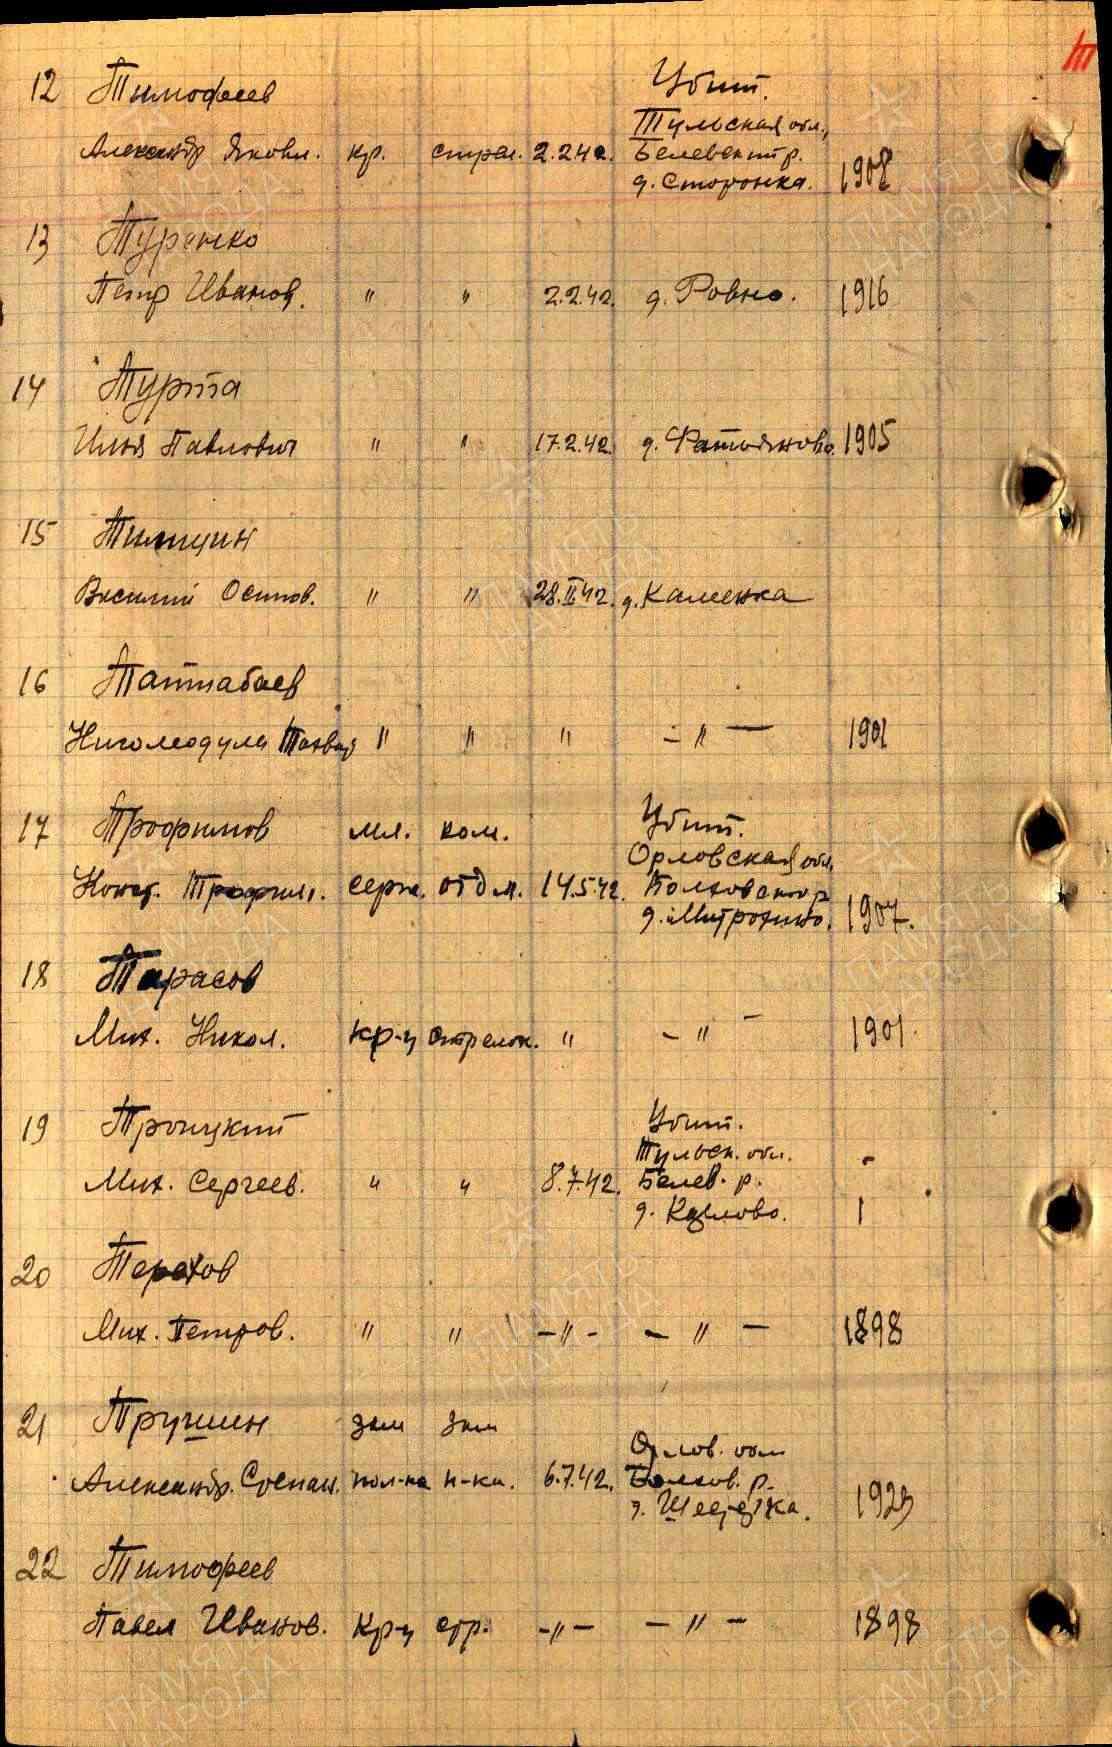 Т
12 Тимофеев Убит.
Тульская обл.,
Александр Яковл. кр. стрел. 2.2.42. Белевский р.
д. Сторонка. 1908
13 Туренко
Петр Иванов. " " 2.2.42. д. Ровно. 1916
14 Турта
Илья Павлович " " 17.2.42. д. Фатьяново. 1905
15 Тимшин
Василий Осипов. " " 28.II.42. д. Каменка
16 Таттабаев
" " " - " - 1901
17 Трофимов мл. ком. Убит.
Орловская обл,
Конст. Трофим. серж. отд. 14.5.42. Болховского р
д. Митрохино. 1907.
18 Тарасов
Мих. Никол. кр-ц стрелок. " - " - 1901.
19 Троицкий Убит.
Тульск. обл. -
Мих. Сергеев. " " 8.7.42. Белев. р.
д. Козлово. 1
20 Терехов
Мих. Петров. " " - " - - " - 1898
21 Трушин зам зам
Орлов. обл
Александр. Степан. пол-ка н-ка. 6.7.42. Болхов. р.
д. 1923
22 Тимофеев
Павел Иванов. Кр-ц стр. - " - - " - 1898
ПАМЯТЬ НАРОДА